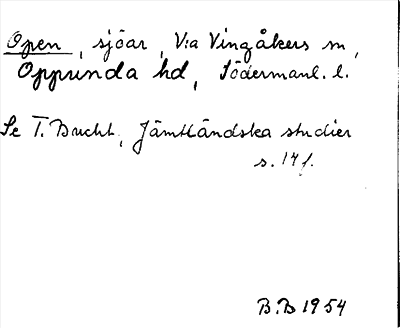 Open, sjöar, V:a Vingåkers sn,
Oppunda hd, Södermanl. l.
Se T. Bucht, Jämtländska studier
s. 17 f.
B.B 1954